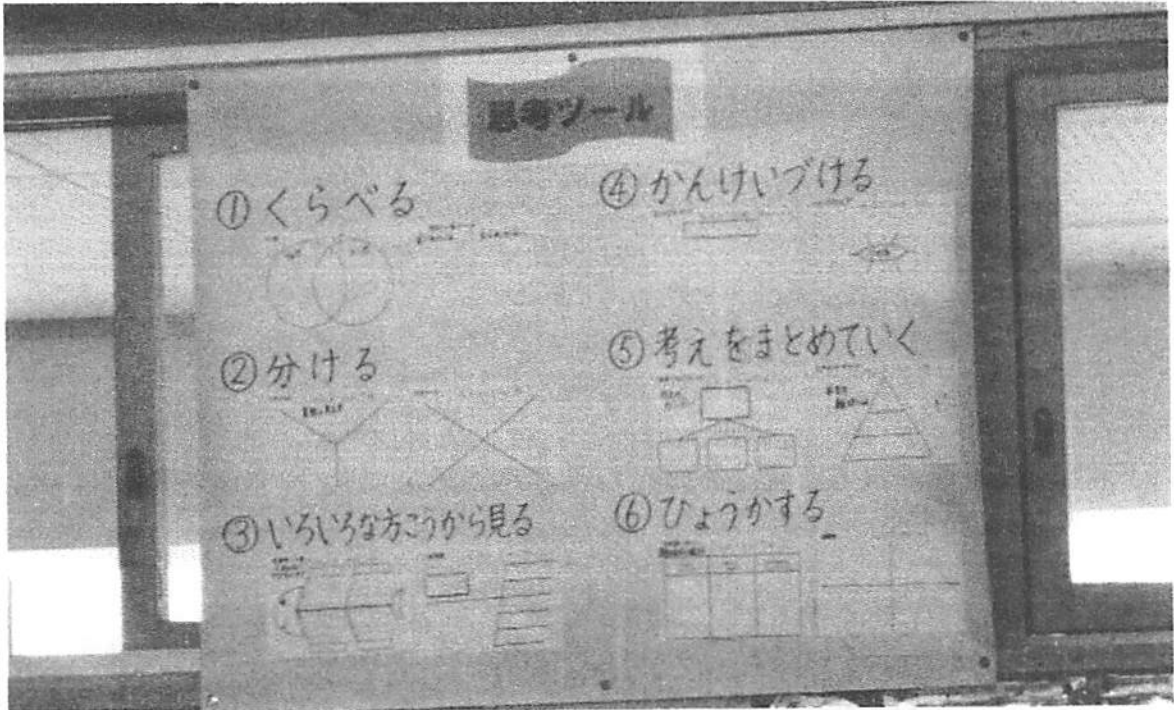 思考ツール
①くらべる
②分ける
③いろいろな方こうから見る
④かんけいづける
⑤考えをまとめていく
⑥ひょうかする